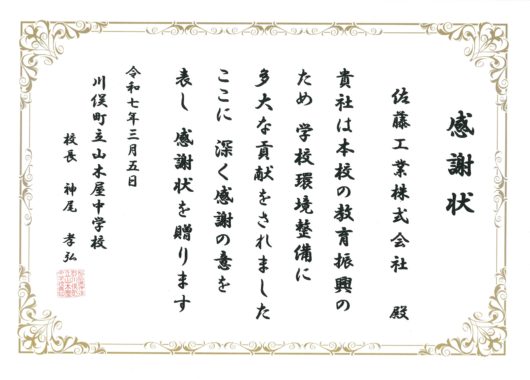 感謝状
佐藤工業株式会社 殿
貴社は本校の教育振興の
ため 学校環境整備に
多大な貢献をされました
ここに 深く感謝の意を
表し 感謝状を贈ります
令和七年三月五日
川俣町立山木屋中学校
校長 神尾 孝弘